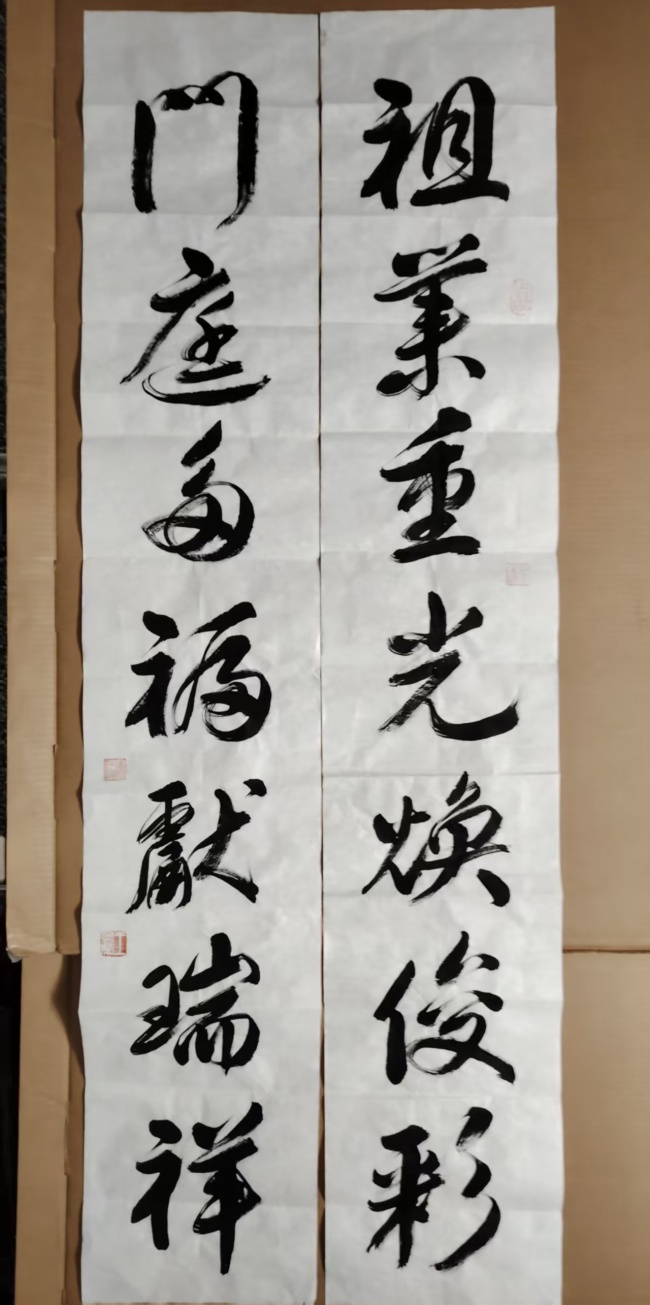 祖業重光煥俊彩
門庭多福獻瑞祥